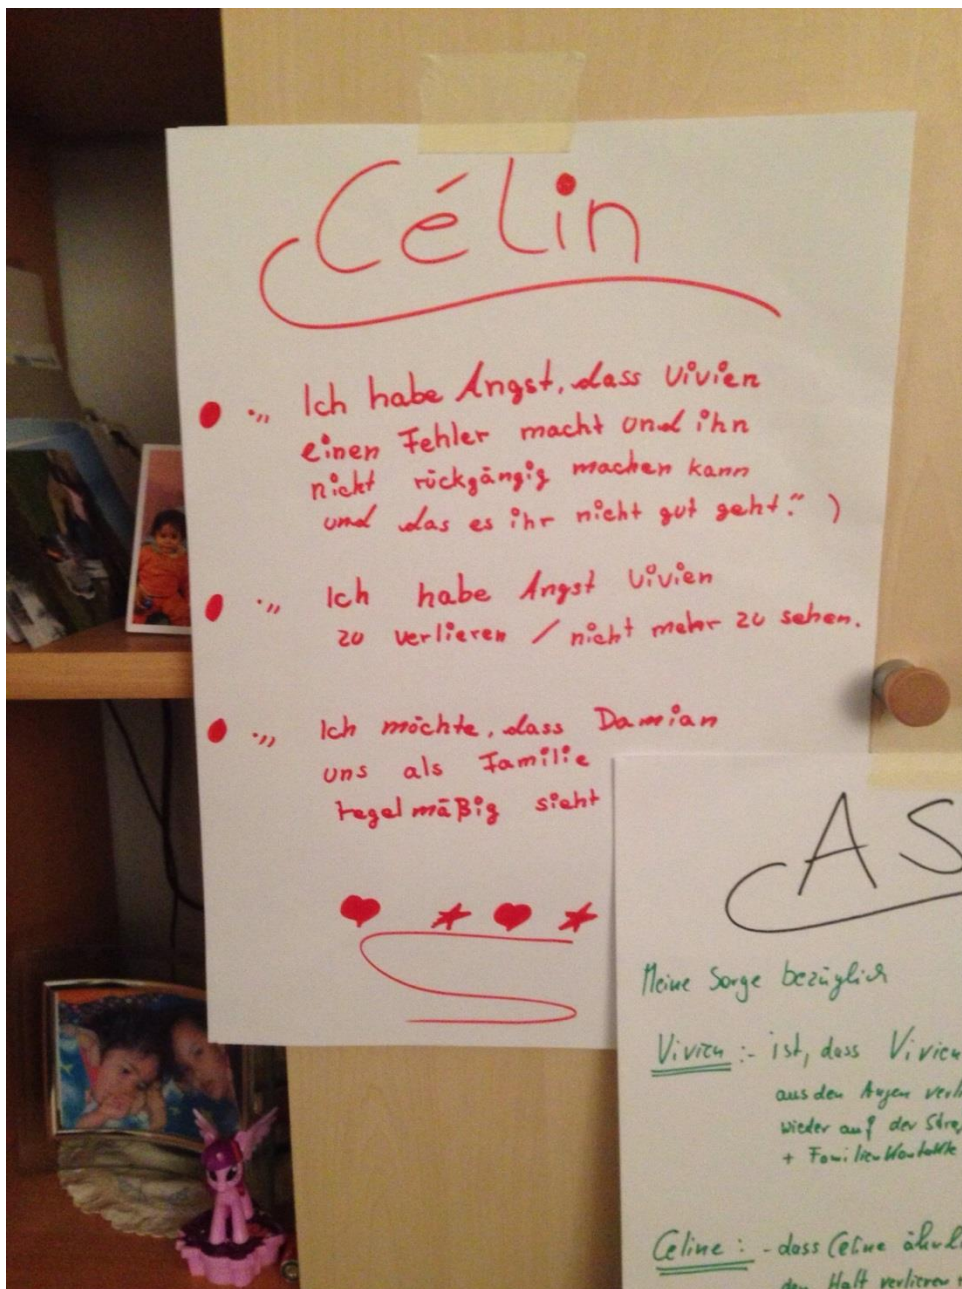 Célin
." Ich habe Angst, dass Vivien
einen Fehler macht und ihn
nicht rückgängig machen kann
und das es ihr nicht gut geht." )
." Ich habe Angst Vivien
zu verlieren / nicht mehr zu sehen.
." Ich möchte, dass Damian
uns als Familie
regelmäßig sieht
AS
Meine Sorge bezüglich
Vivien :- ist, dass Vivien
aus den Augen verli
wieder auf der Stra
+ Familienkontakte
Celine : - dass Celine ähnli
den Halt verlieren